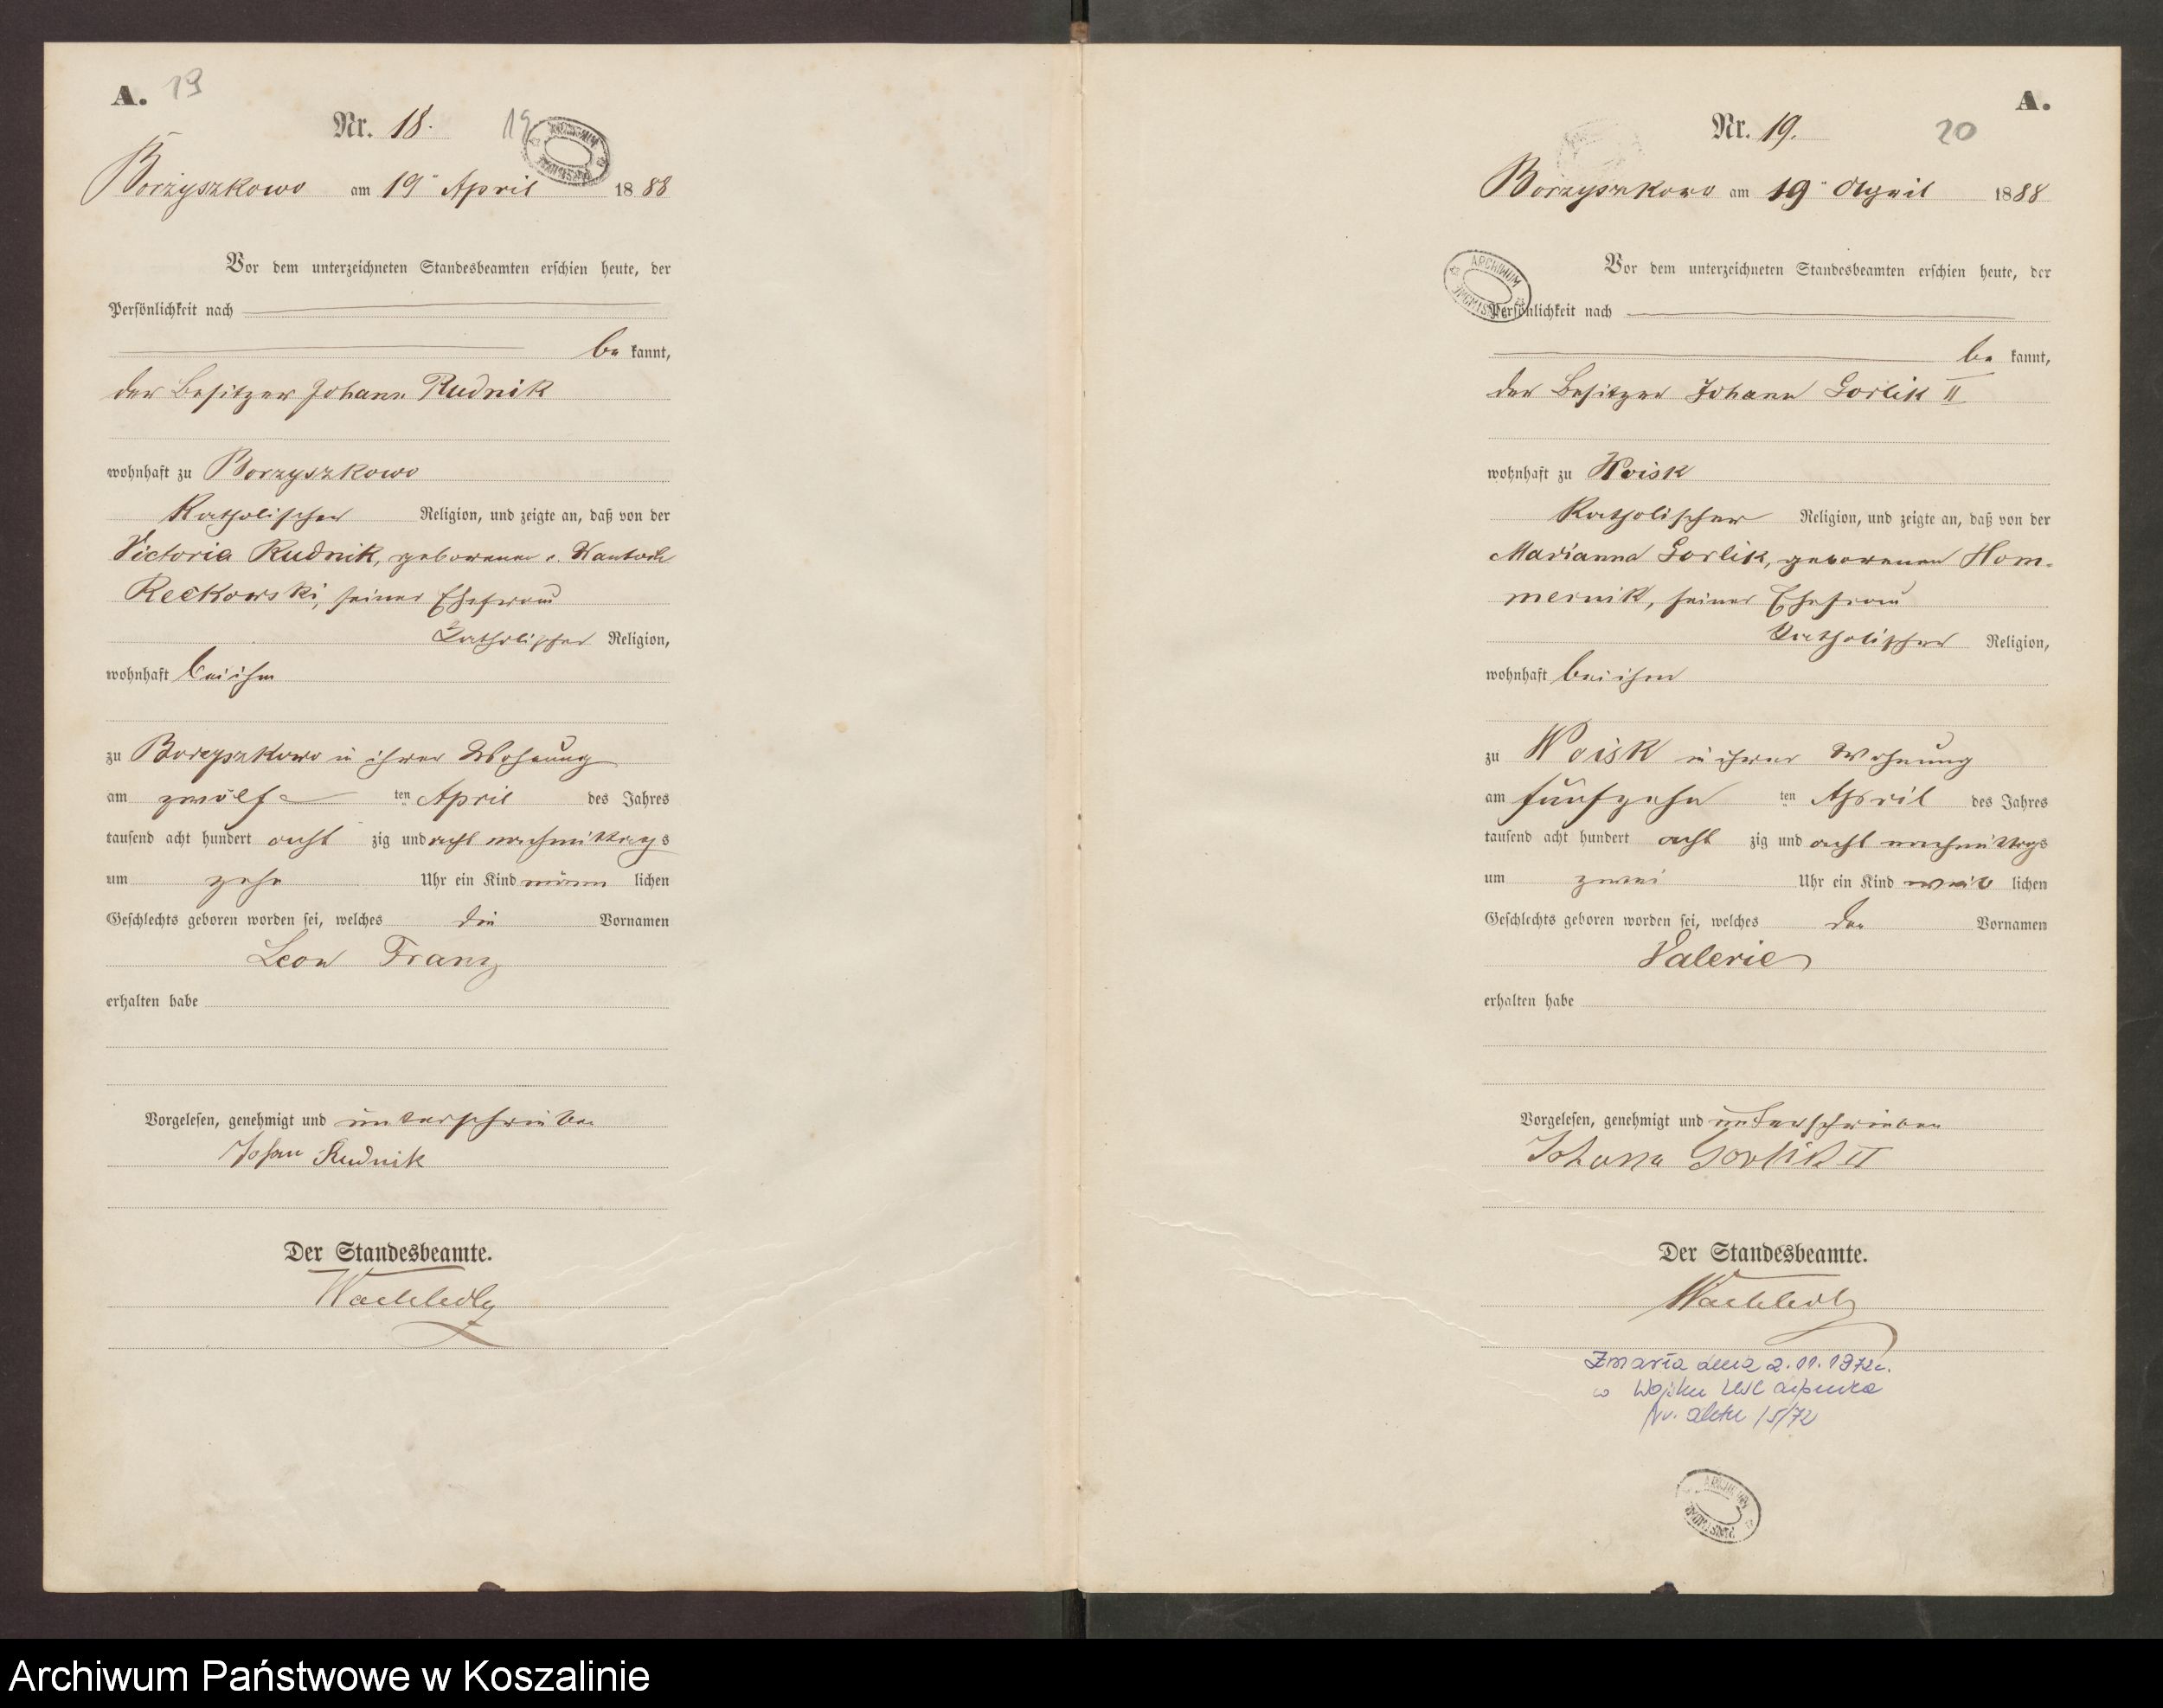 A. 19
Nr. 18. 19
Borzyszkowo am 19 April 1888
Vor dem unterzeichneten Standesbeamten erschien heute, der
Persönlichkeit nach
be kannt,
der Besitzer Johann Rudnik
wohnhaft zu Borzyszkowo
Katholischer Religion, und zeigte an, daß von der
Victoria Rudnik, geborenen v. Wantoch
Reckowski, seiner Ehefrau
Katholischer Religion,
wohnhaft bei ihm
zu Borzyszkowo in ihrer Wohnung
am zwölf ten April des Jahres
tausend acht hundert acht zig und acht nachmittags
um zehn Uhr ein Kind männ lichen
Geschlechts geboren worden sei, welches die Vornamen
Leon Franz
erhalten habe
Vorgelesen, genehmigt und unterschrieben
Johan Rudnik
Der Standesbeamte.
A.
Nr. 19. 20
Borzyszkowo am 19 April 1888
Vor dem unterzeichneten Standesbeamten erschien heute, der
Persönlichkeit nach
be kannt,
der Besitzer Johann Gorlik II
wohnhaft zu Woisk
Katholischer Religion, und zeigte an, daß von der
Marianna Gorlik, geborenen Hom-
mernik, seiner Ehefrau
Katholischer Religion,
wohnhaft bei ihm
zu Woisk in ihrer Wohnung
am fünfzehn ten April des Jahres
tausend acht hundert acht zig und acht nachmittags
um zwei Uhr ein Kind weib lichen
Geschlechts geboren worden sei, welches den Vornamen
Valerie
erhalten habe
Vorgelesen, genehmigt und unterschrieben
Johann Gorlik II
Der Standesbeamte.
Zmarła dnia 2.11.1972r.
w Wojsku USC Lipnica
Nr. aktu 15/72
Archiwum Państwowe w Koszalinie